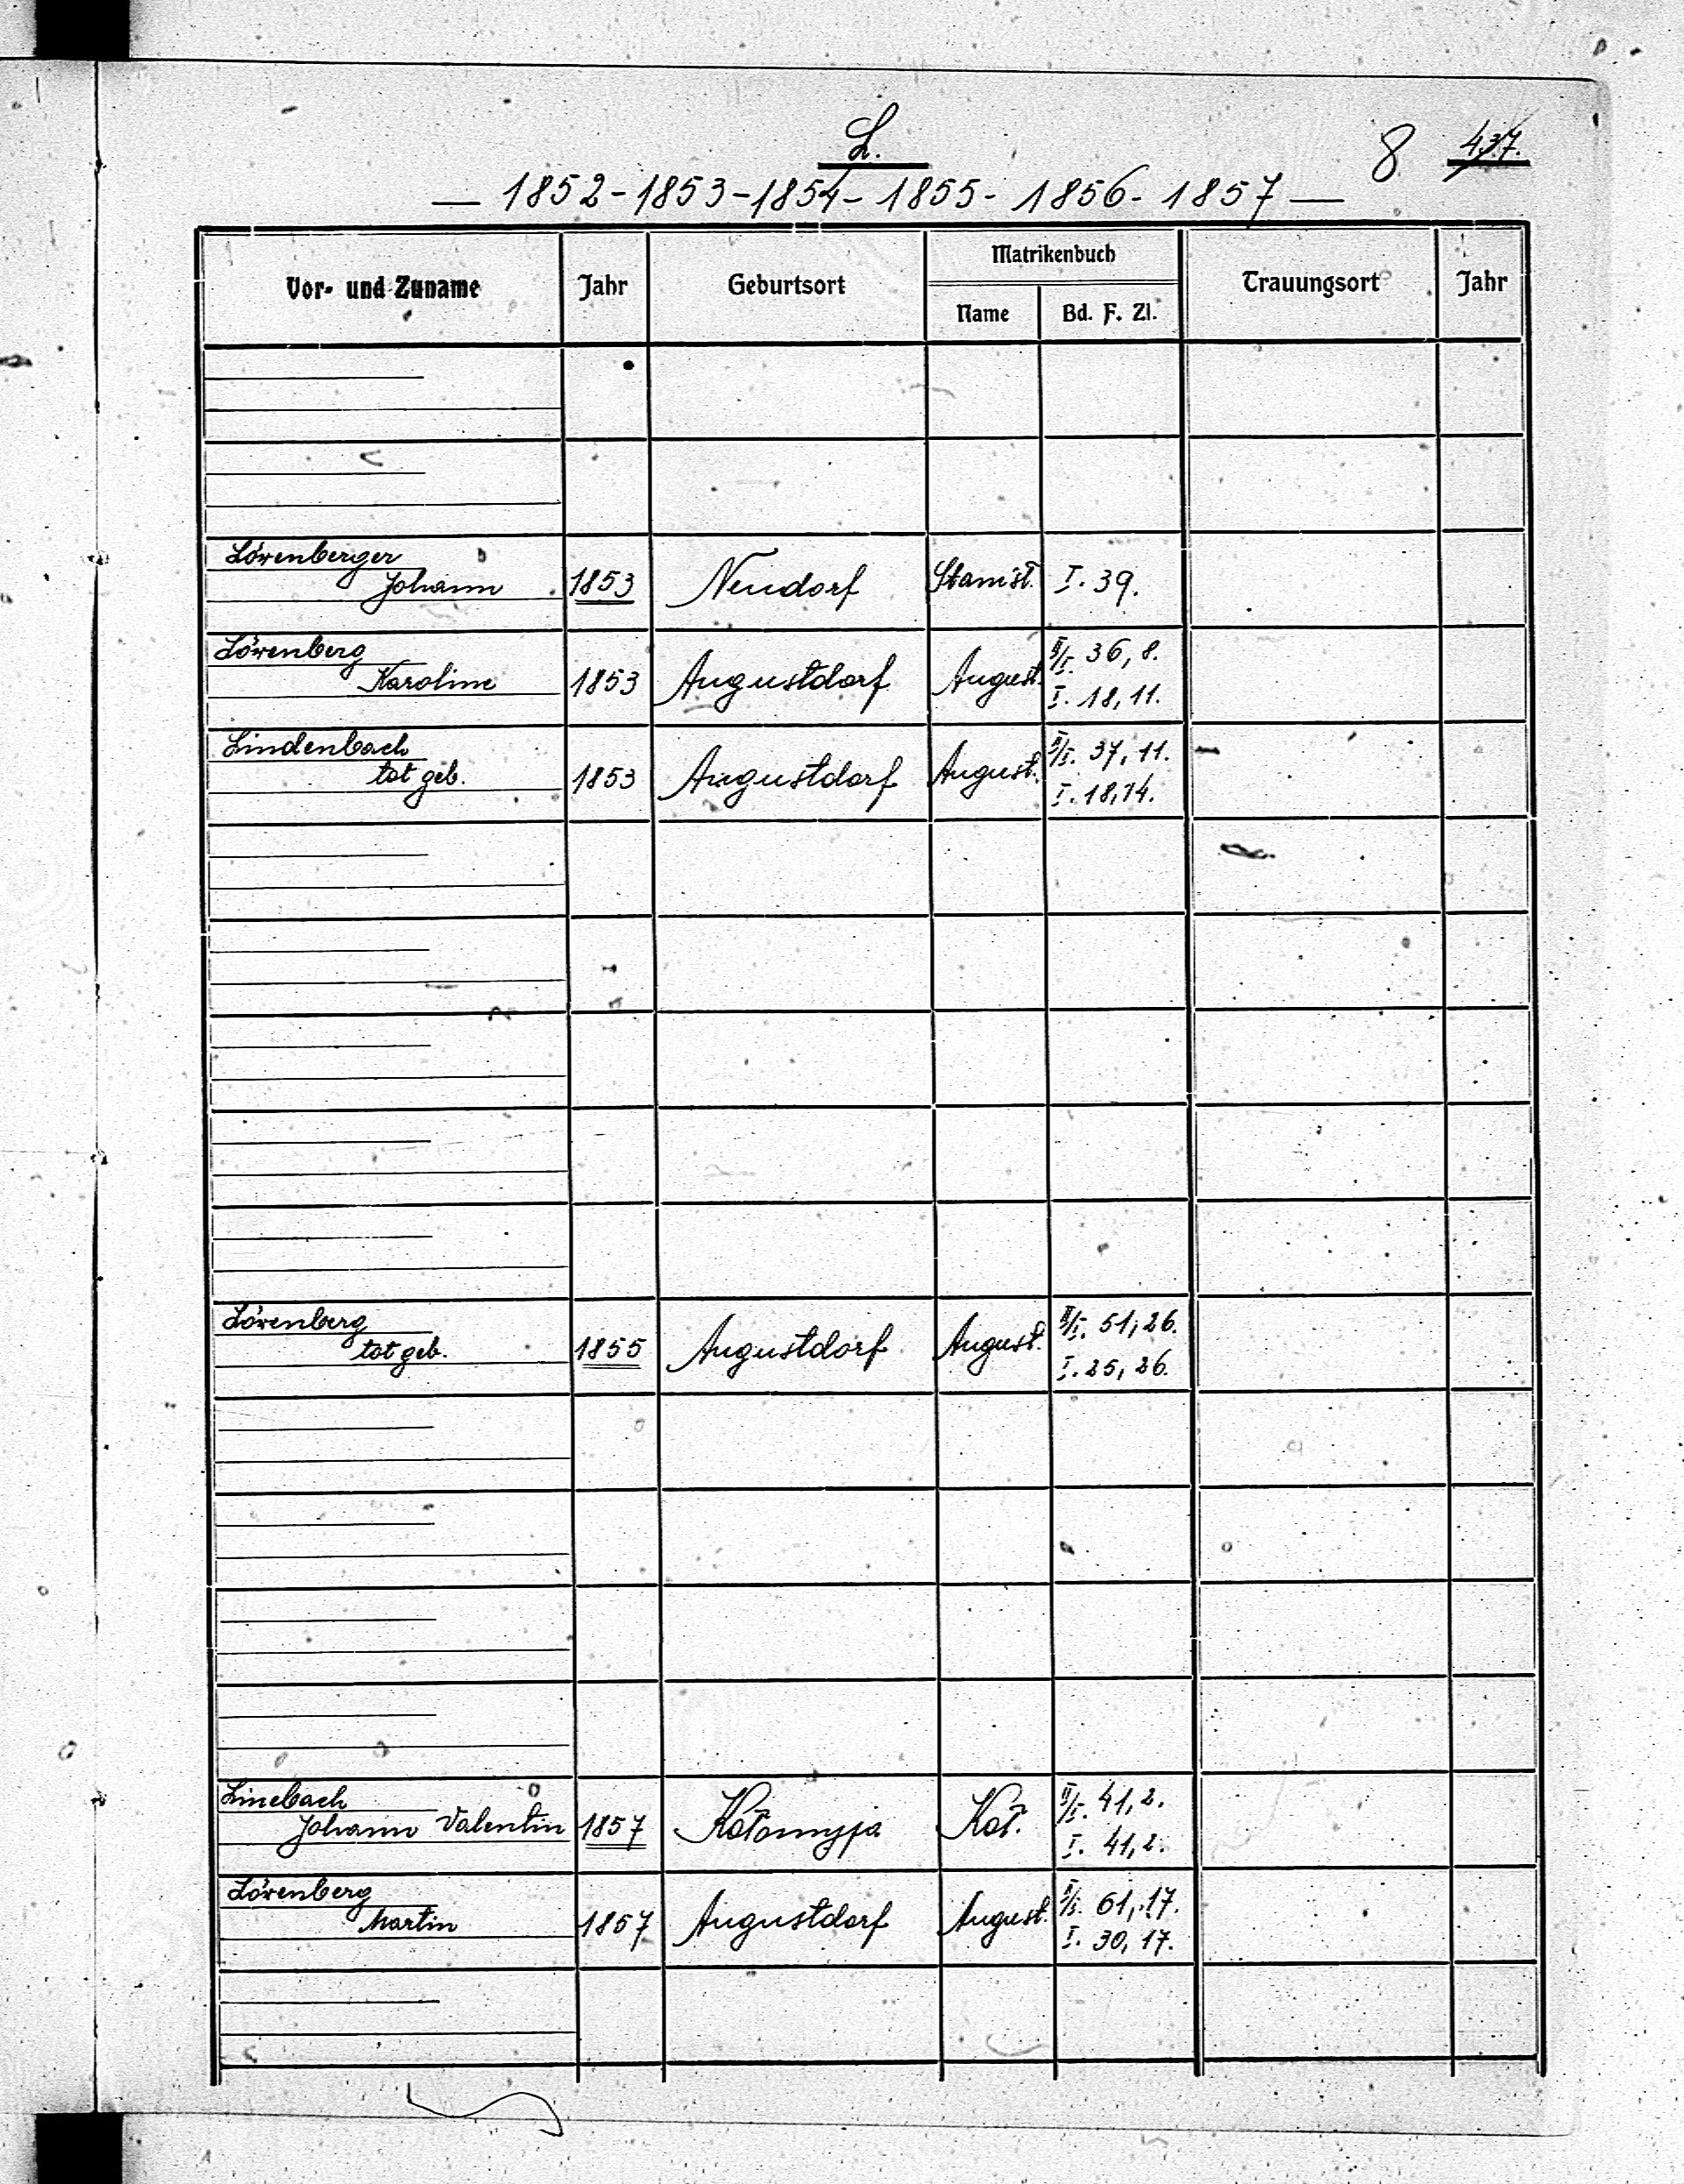 L.
8 437.
— 1852-1853-1854-1855-1856-1857 —
Vor- und Zuname Jahr Geburtsort Matrikenbuch Trauungsort Jahr
Name Bd. F. Zl.
Löwenberger
Johann 1853 Neudorf Stanisł. I. 39.
Löwenberg II/I. 36, 8.
Karoline 1853 Augustdorf August. I. 18, 11.
Lindenbach II/I. 37, 11.
tot geb. 1853 Augustdorf August. I. 18, 14.
Löwenberg II/I. 51, 26.
tot geb. 1855 Augustdorf August. I. 25, 26.
Linebach II/I. 41, 2.
Johann Valentin 1857 Kołomyja Koł. I. 41, 2.
Löwenberg II/I. 61, 17.
Martin 1857 Augustdorf August. I. 30, 17.